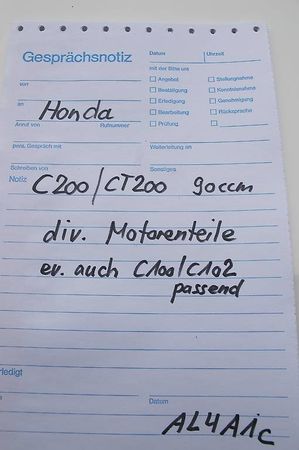 Gesprächsnotiz
Datum Uhrzeit
mit der Bitte um
Angebot Stellungnahme
Bestätigung Kenntnisnahme
Erledigung Genehmigung
Bearbeitung Rücksprache
Prüfung
von
an
Honda
Anruf von Rufnummer
pers. Gespräch mit Weiterleitung an
Schreiben von Sonstiges
Notiz
C200/CT200 90ccm
div. Motorenteile
ev. auch C100/C102
passend
erledigt
Datum
AL4A1c